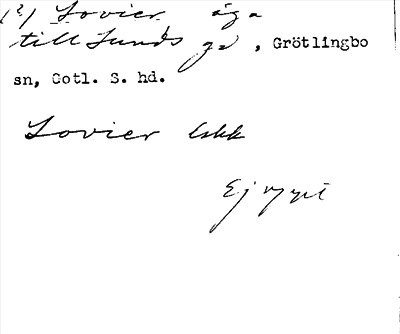 (?) Lovier äga
till Sunds gd, Grötlingbo
sn, Gotl. S. hd.
Lovier
Ej